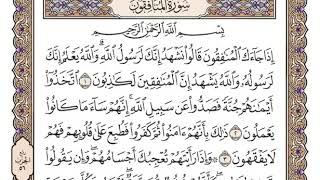 سُورَةُ المُنَافِقُونَ
بِسْمِ اللَّهِ الرَّحْمَٰنِ الرَّحِيمِ
إِذَا جَاءَكَ الْمُنَافِقُونَ قَالُوا نَشْهَدُ إِنَّكَ لَرَسُولُ اللَّهِ ۗ وَاللَّهُ يَعْلَمُ إِنَّكَ
لَرَسُولُهُ وَاللَّهُ يَشْهَدُ إِنَّ الْمُنَافِقِينَ لَكَاذِبُونَ ١ اتَّخَذُوا
أَيْمَانَهُمْ جُنَّةً فَصَدُّوا عَن سَبِيلِ اللَّهِ ۚ إِنَّهُمْ سَاءَ مَا كَانُوا
يَعْمَلُونَ ٢ ذَٰلِكَ بِأَنَّهُمْ آمَنُوا ثُمَّ كَفَرُوا فَطُبِعَ عَلَىٰ قُلُوبِهِمْ فَهُمْ
لَا يَفْقَهُونَ ٣ ۞ وَإِذَا رَأَيْتَهُمْ تُعْجِبُكَ أَجْسَامُهُمْ ۖ وَإِن يَقُولُوا